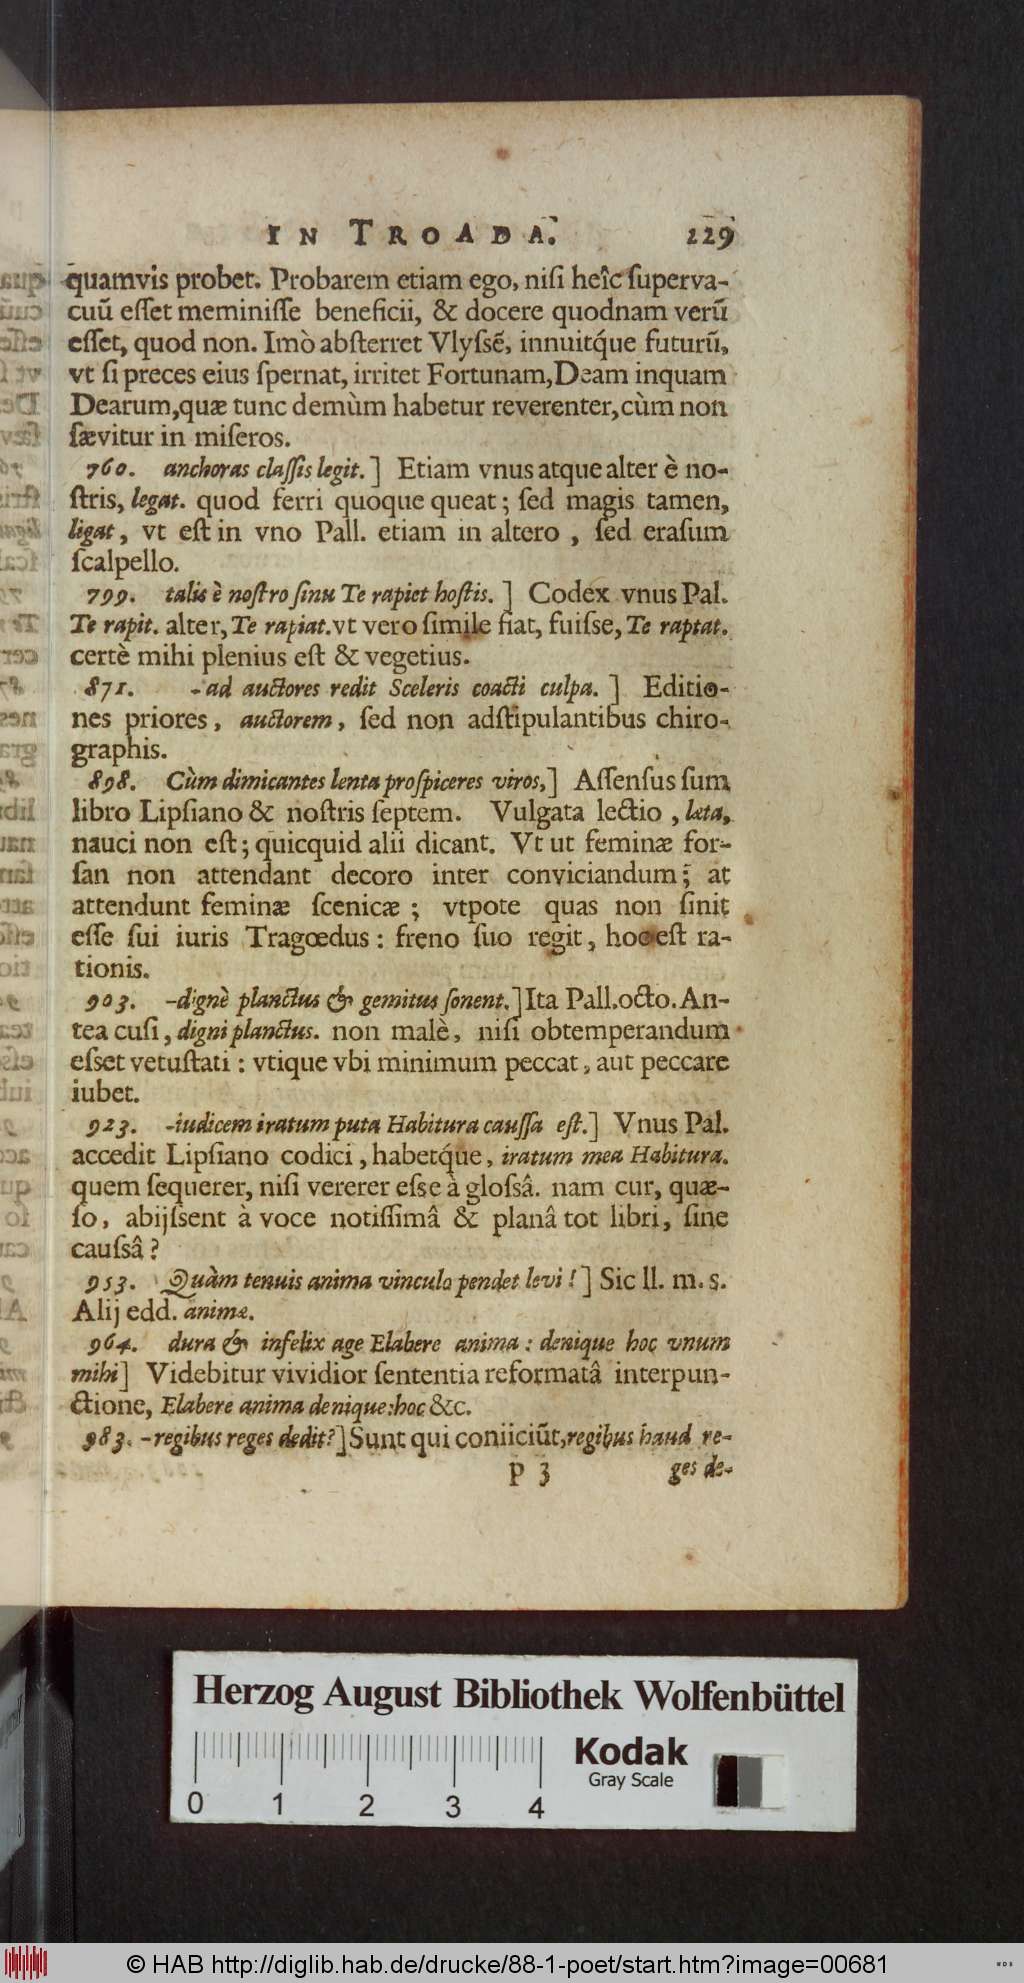 IN TROADA. 229
quamvis probet. Probarem etiam ego, niſi heîc ſuperva-
cuũ eſſet meminiſſe beneficii, & docere quodnam verũ
eſſet, quod non. Imò abſterret Vlyſſẽ, innuitq́ue futurũ,
vt ſi preces eius ſpernat, irritet Fortunam, Deam inquam
Dearum, quæ tunc demùm habetur reverenter, cùm non
ſævitur in miſeros.
760. anchoras claſſis legit.] Etiam vnus atque alter è no-
ſtris, legat. quod ferri quoque queat; ſed magis tamen,
ligat, vt eſt in vno Pall. etiam in altero, ſed eraſum
ſcalpello.
799. talis è noſtro ſinu Te rapiet hoſtis.] Codex vnus Pal.
Te rapit. alter, Te rapiat. vt vero ſimile fiat, fuiſse, Te raptat.
certè mihi plenius eſt & vegetius.
871. -ad auctores redit Sceleris coacti culpa.] Editio-
nes priores, auctorem, ſed non adſtipulantibus chiro-
graphis.
898. Cùm dimicantes lenta proſpiceres viros,] Aſſenſus ſum
libro Lipſiano & noſtris ſeptem. Vulgata lectio, læta,
nauci non eſt; quicquid alii dicant. Vt ut feminæ for-
ſan non attendant decoro inter conviciandum; at
attendunt feminæ ſcenicæ; vtpote quas non ſinit
eſſe ſui iuris Tragœdus: freno ſuo regit, hoc eſt ra-
tionis.
903. -dignè planctus & gemitus ſonent.] Ita Pall. octo. An-
tea cuſi, digni planctus. non malè, niſi obtemperandum
eſset vetuſtati: vtique vbi minimum peccat, aut peccare
iubet.
923. -iudicem iratum puta Habitura cauſſa eſt.] Vnus Pal.
accedit Lipſiano codici, habetq́ue, iratum mea Habitura.
quem ſequerer, niſi vererer eſse à gloſsâ. nam cur, quæ-
ſo, abijſsent à voce notiſſimâ & planâ tot libri, ſine
cauſsâ?
953. Quàm tenuis anima vinculo pendet levi!] Sic ll. m. s.
Alij edd. animæ.
964. dura & infelix age Elabere anima: denique hoc vnum
mihi] Videbitur vividior ſententia reformatâ interpun-
ctione, Elabere anima denique: hoc &c.
983. -regibus reges dedit?] Sunt qui coniiciũt, regibus haud re-
P 3 ges de-
Herzog August Bibliothek Wolfenbüttel
Kodak
Gray Scale
0 1 2 3 4
© HAB http://diglib.hab.de/drucke/88-1-poet/start.htm?image=00681